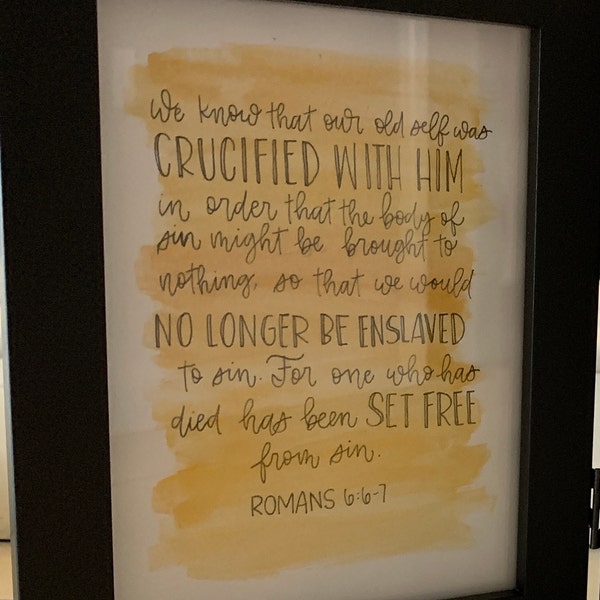 we know that our old self was
CRUCIFIED WITH HIM
in order that the body of
sin might be brought to
nothing, so that we would
NO LONGER BE ENSLAVED
to sin. For one who has
died has been SET FREE
from sin.
ROMANS 6:6-7